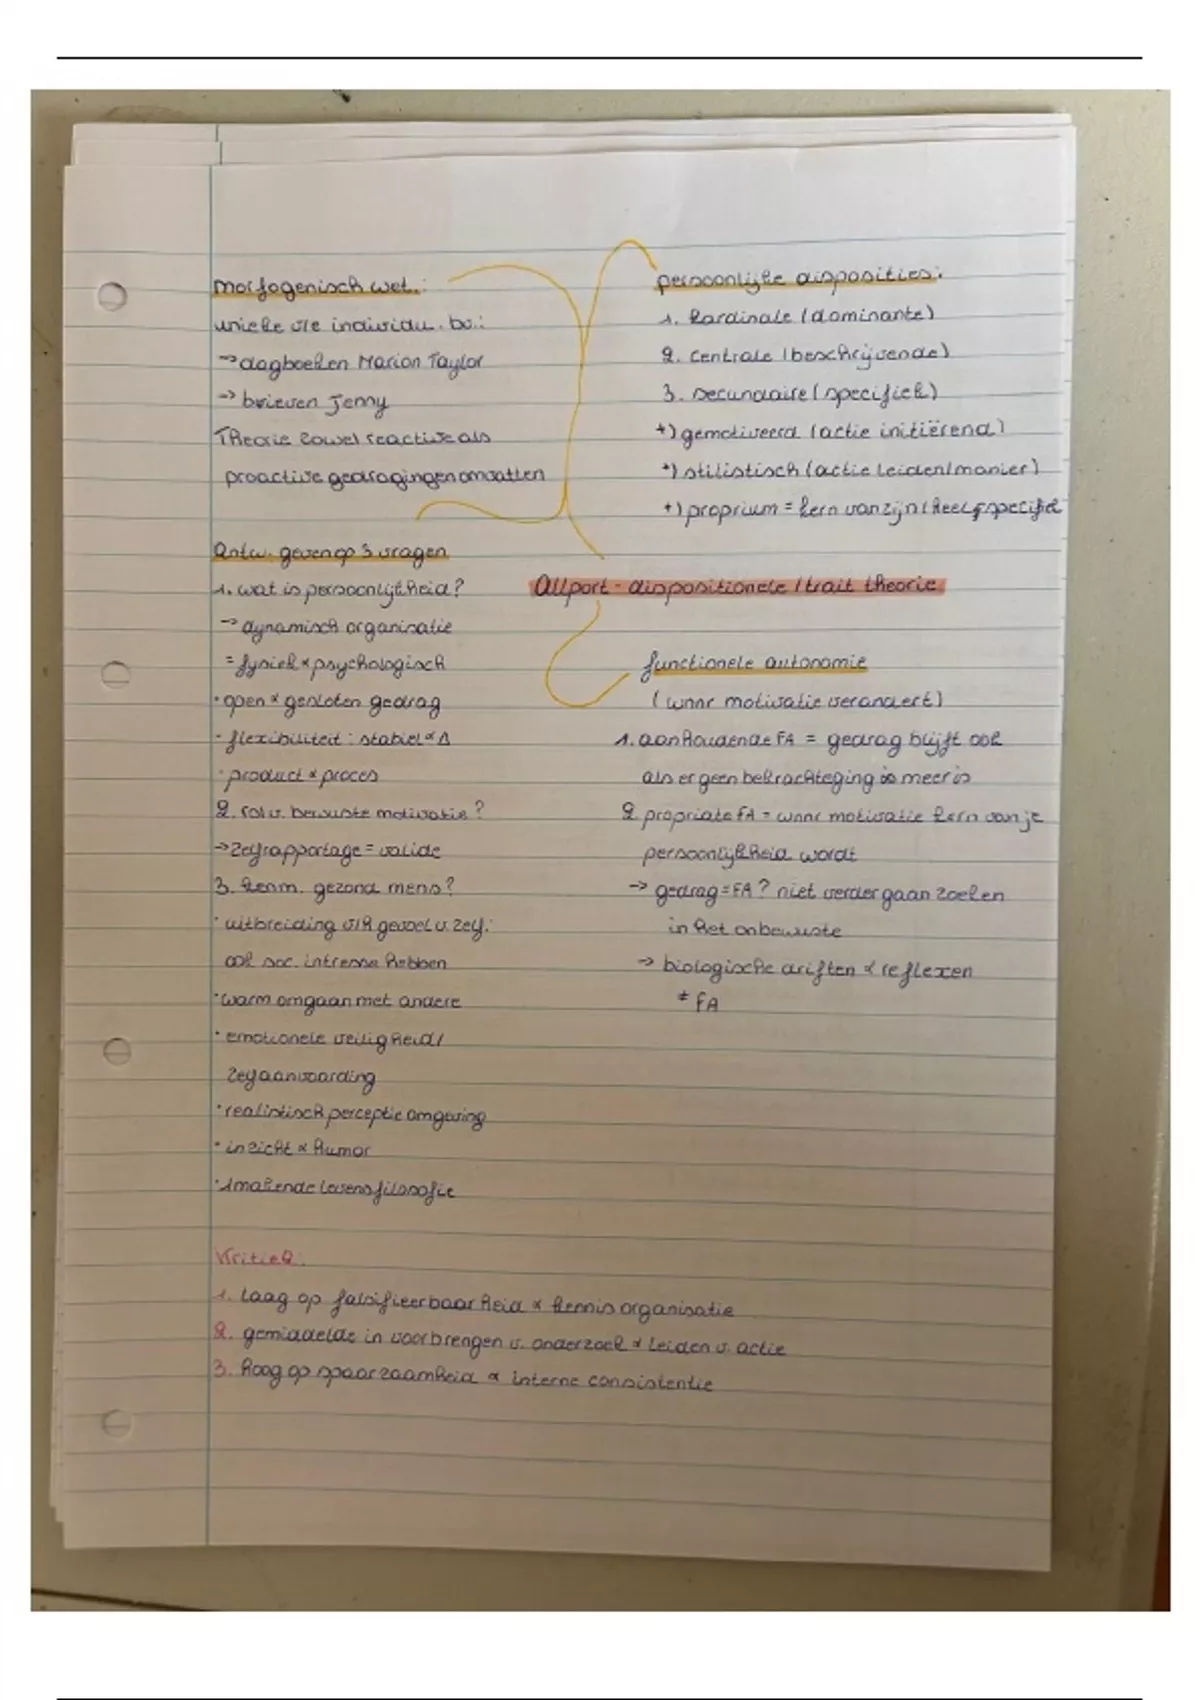 morfogenisch wet.:
unieke v/e individu. bv.:
→ dagboeken Marion Taylor
→ brieven Jenny
Theorie zowel reactive als
proactive gedragingen omvatten
Antw. geven op 3 vragen
1. wat is persoonlijkheid?
→ dynamisch organisatie
= fysiek & psychologisch
· open & gesloten gedrag
· flexibiliteit: stabiel & Δ
· product & proces
2. rol v. bewuste motivatie?
→ zelfrapportage = valide
3. kenm. gezond mens?
· uitbreiding v/h gevoel v. zelf:
ook soc. intresse hebben
· warm omgaan met andere
· emotionele veiligheid/
zelfaanvaarding
· realistisch perceptie omgeving
· inzicht & humor
· 1makende levensfilosofie
persoonlijke disposities:
1. kardinale (dominante)
2. centrale (beschrijvende)
3. secundaire (specifiek)
+) gemotiveerd (actie initiërend)
+) stilistisch (actie leiden/manier)
+) proprium = kern van zijn (heel specifiek
Allport - dispositionele / trait theorie
functionele autonomie
(waar motivatie verandert)
1. aanhoudende FA = gedrag blijft ook
als er geen bekrachteging meer is
2. propriate FA = waar motivatie kern van je
persoonlijkheid wordt
→ gedrag = FA? niet verder gaan zoeken
in het onbewuste
→ biologische driften & reflexen
≠ FA
Kritiek:
1. laag op falsifieerbaarheid & kennis organisatie
2. gemiddelde in voorbrengen v. onderzoek & leiden v. actie
3. hoog op spaarzaamheid & interne consistentie